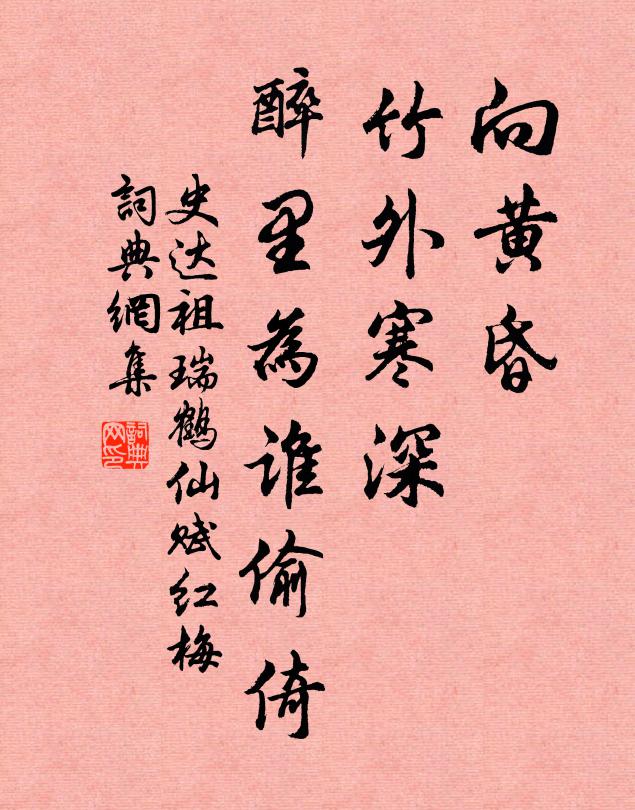 向黄昏
竹外寒深
醉里為谁偷倚
史达祖瑞鶴仙赋红梅
詞典網集
詞典网印